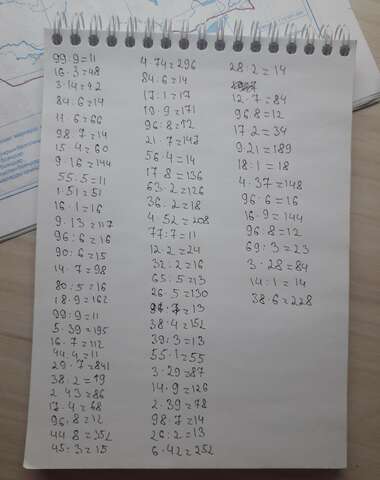 99:9=11
16·3=48
3·14=42
84:6=14
11·6=66
98:7=14
15·4=60
9·16=144
55:5=11
1·51=51
16:1=16
9·13=117
96:6=16
90:6=15
14·7=98
80:5=16
18·9=162
99:9=11
5·39=195
16·7=112
44:4=11
29·7=841
38:2=19
2·43=86
17·4=68
96:8=12
44·8=352
45:3=15
4·74=296
84:6=14
17:1=17
19·9=171
96:8=12
21·7=147
56:4=14
17·8=136
63·2=126
36:2=18
4·52=208
77:7=11
12·2=24
32:2=16
65:5=13
26·5=130
91:7=13
38·4=152
39:3=13
55·1=55
3·29=87
14·9=126
2·39=78
98:7=14
26:2=13
6·42=252
28:2=14
12·7=84
96:8=12
17·2=34
9·21=189
18·1=18
4·37=148
96:6=16
16·9=144
96:8=12
69:3=23
3·28=84
14:1=14
38·6=228